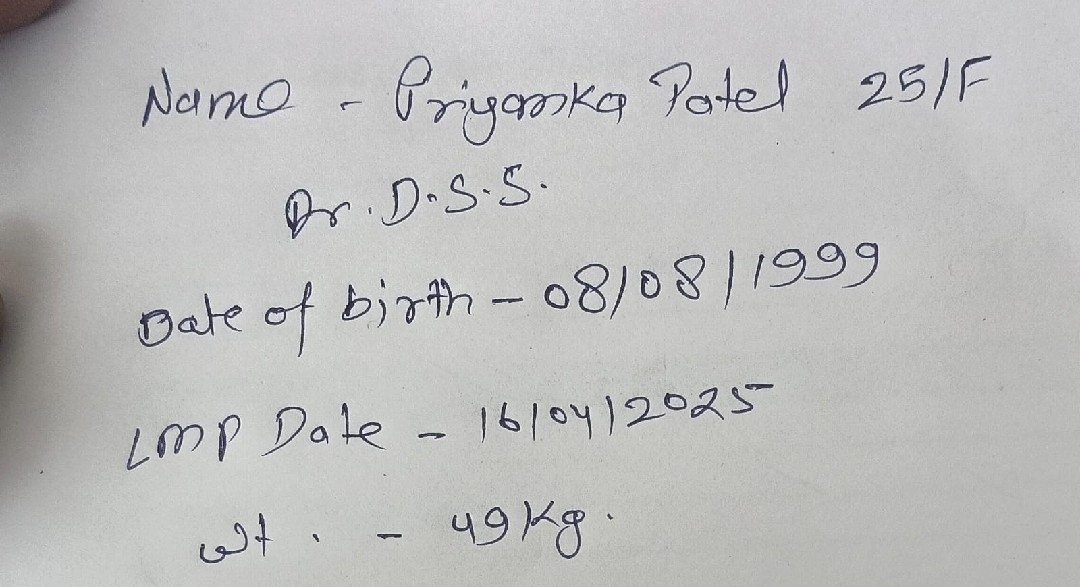 Name - Priyanka Patel 25/F
Dr. D.S.S.
Date of birth - 08/08/1999
LMP Date - 16/04/2025
wt. - 49 Kg.